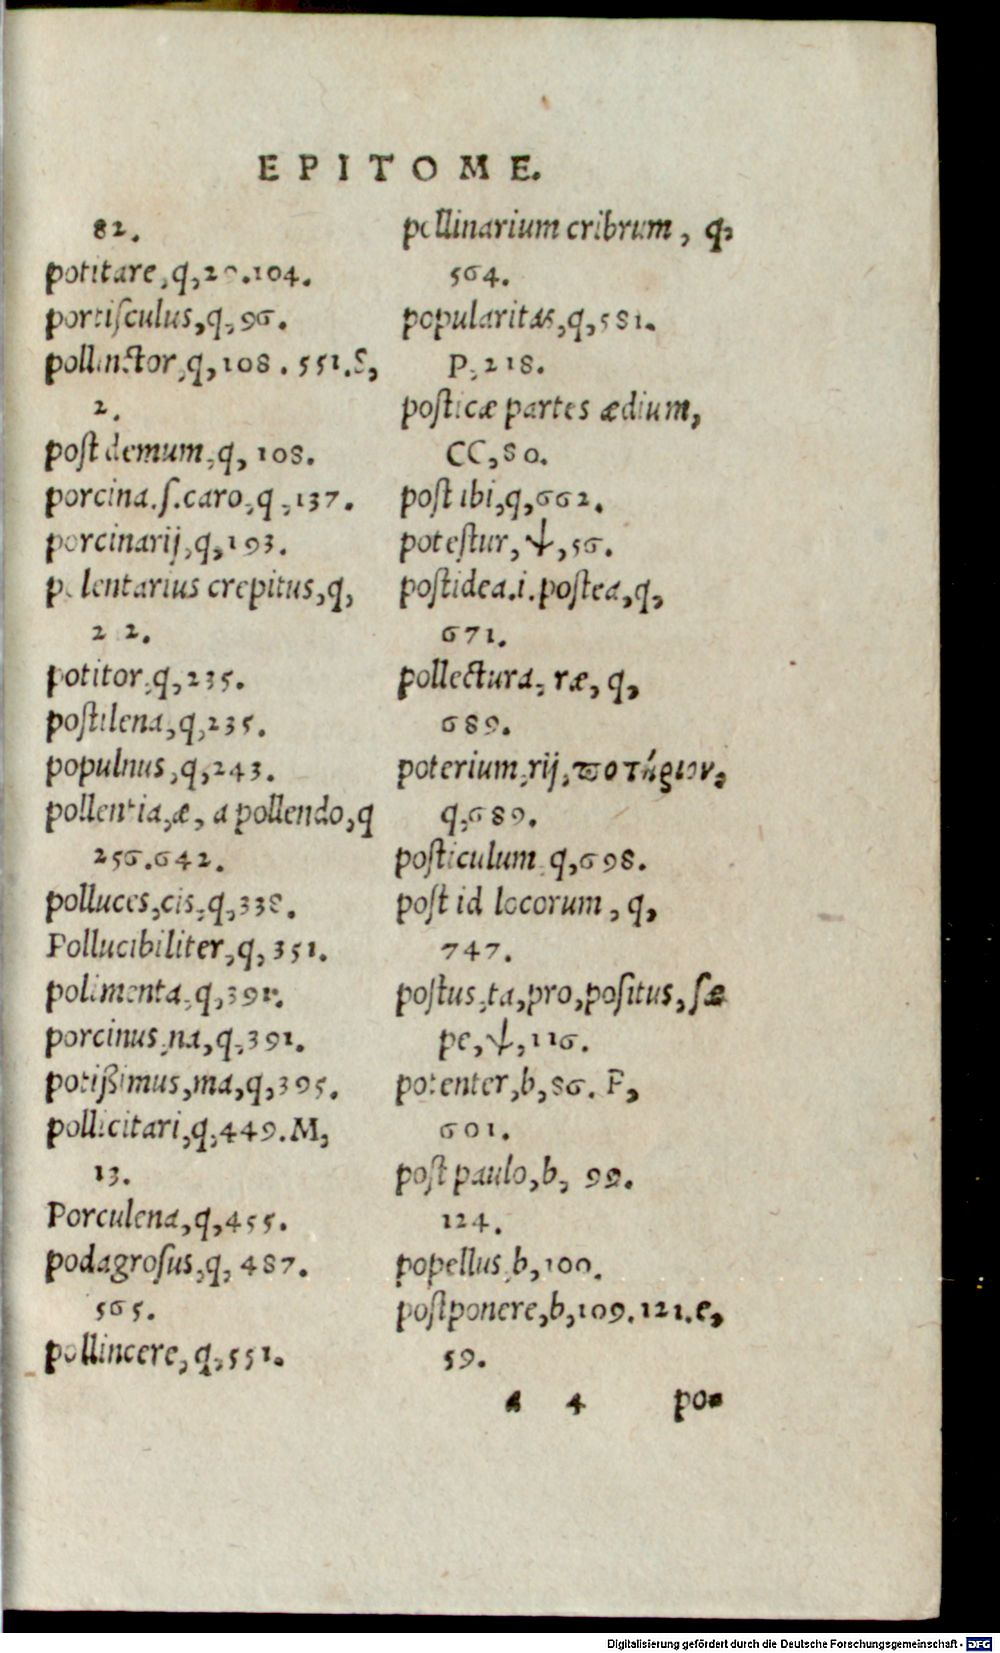 EPITOME.
82.
potitare, q, 20.104.
portiſculus, q, 96.
pollinctor, q, 108. 551. S,
2.
poſt demum, q, 108.
porcina. ſ. caro, q, 137.
porcinarij, q, 193.
polentarius crepitus, q,
2 2.
potitor, q, 235.
poſtilena, q, 235.
populnus, q, 243.
pollentia, æ, a pollendo, q
256.642.
polluces, cis, q, 338.
Pollucibiliter, q, 351.
polimenta, q, 391.
porcinus, na, q, 391.
potißimus, ma, q, 395.
pollicitari, q, 449. M,
13.
Porculena, q, 455.
podagroſus, q, 487.
565.
pollincere, q, 551.
pollinarium cribrum, q,
564.
popularitas, q, 581.
P, 218.
poſticæ partes ædium,
CC, 80.
poſt ibi, q, 662.
poteſtur, ψ, 56.
poſtidea. i. poſtea, q,
671.
pollectura, ræ, q,
689.
poterium, rij, ϖοτήριον,
q, 689.
poſticulum q, 698.
poſt id locorum, q,
747.
poſtus, ta, pro, poſitus, ſæ
pe, ψ, 116.
potenter, b, 86. P,
601.
poſt paulo, b, 99.
124.
popellus, b, 100.
poſtponere, b, 109. 121. e,
59.
4 po-
Digitalisierung gefördert durch die Deutsche Forschungsgemeinschaft - DFG